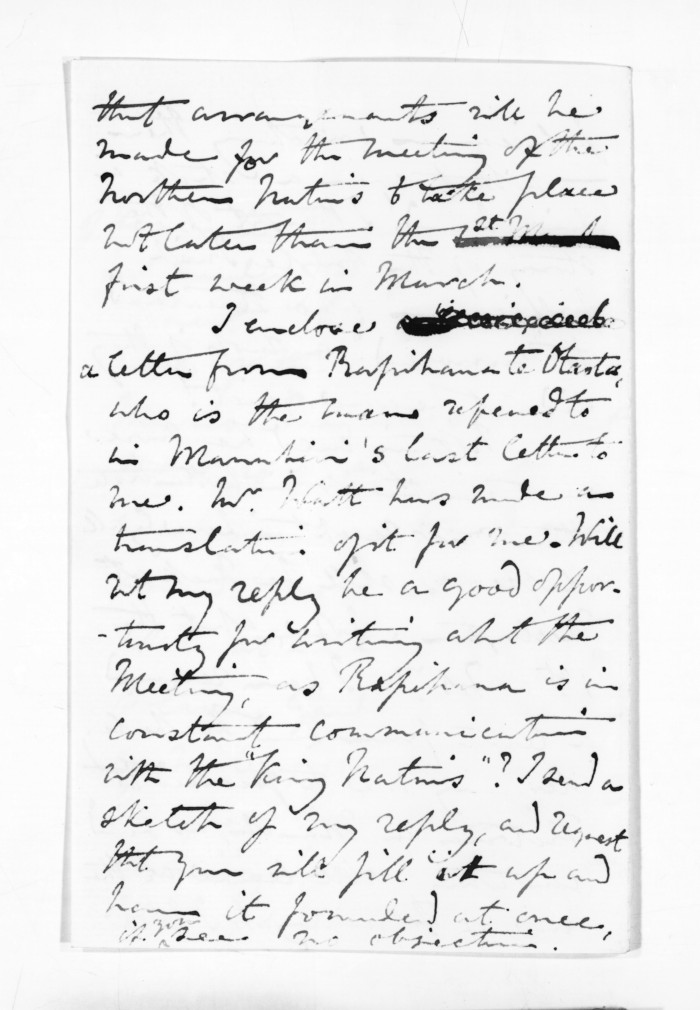 that arrangements will be
made for the meeting of the
Northern Natives to take place
not later than the 1st March
first week in March.
I enclose a
a letter from Rapihana te Otaota,
who is the man referred to
in Manuhiri's last letter to
me. Mr. Platt has made a
translation of it for me. Will
not my reply be a good oppor-
-tunity for writing about the
Meeting, as Rapihana is in
constant communication
with the "King Natives"? I send a
sketch of my reply, and request
that you will fill it up and
have it forwarded at once,
if you see no objection.